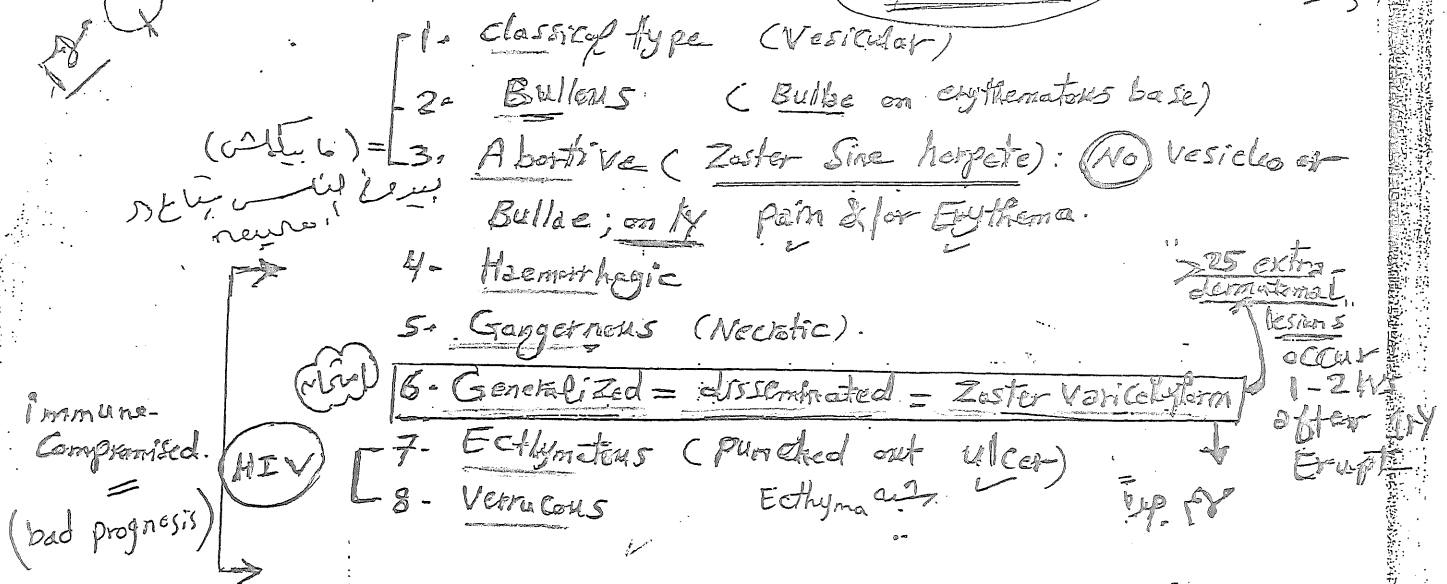 1. Classical type (Vesicular)
2. Bullous (Bullae on erythematous base)
3. Abortive (Zoster Sine herpete): (No) Vesicles or
Bullae; only pain &/or Erythema.
neuro
4- Haemorrhagic
5. Gangernous (Necrotic).
6- Generalized = disseminated = Zoster Varicelliform
">25 extra-
dermatomal"
lesions
occur
1-2 w
after
Erupt
immune-
Compromised.
=
(bad prognosis)
HIV
7- Ecthymatous (punched out ulcer)
Ecthyma
8- Verrucous